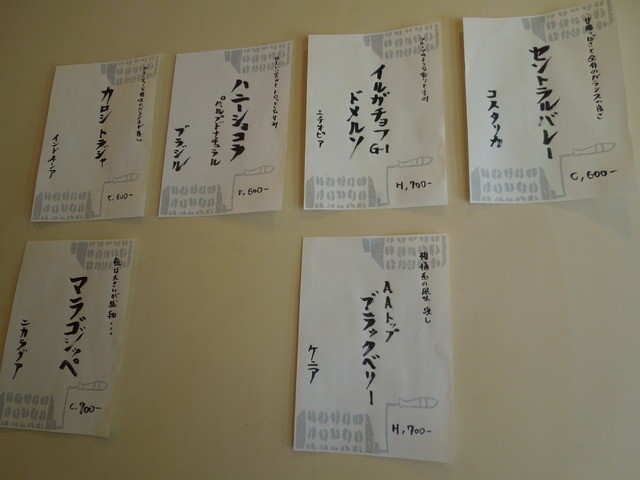 カロシ トラジャ
インドネシア
C, 600-
ハニーショコラ
パルプドナチュラル
ブラジル
F, 600-
イルガチョフ
G-1
ドメルソ
エチオピア
H, 700-
甘味、苦さと全体のバランスの良さ
セントラルバレー
コスタリカ
C, 600-
マラゴジッペ
ニカラグア
C, 700-
柑橘系の風味 強し
AAトップ
ブラックベリー
ケニア
H, 700-